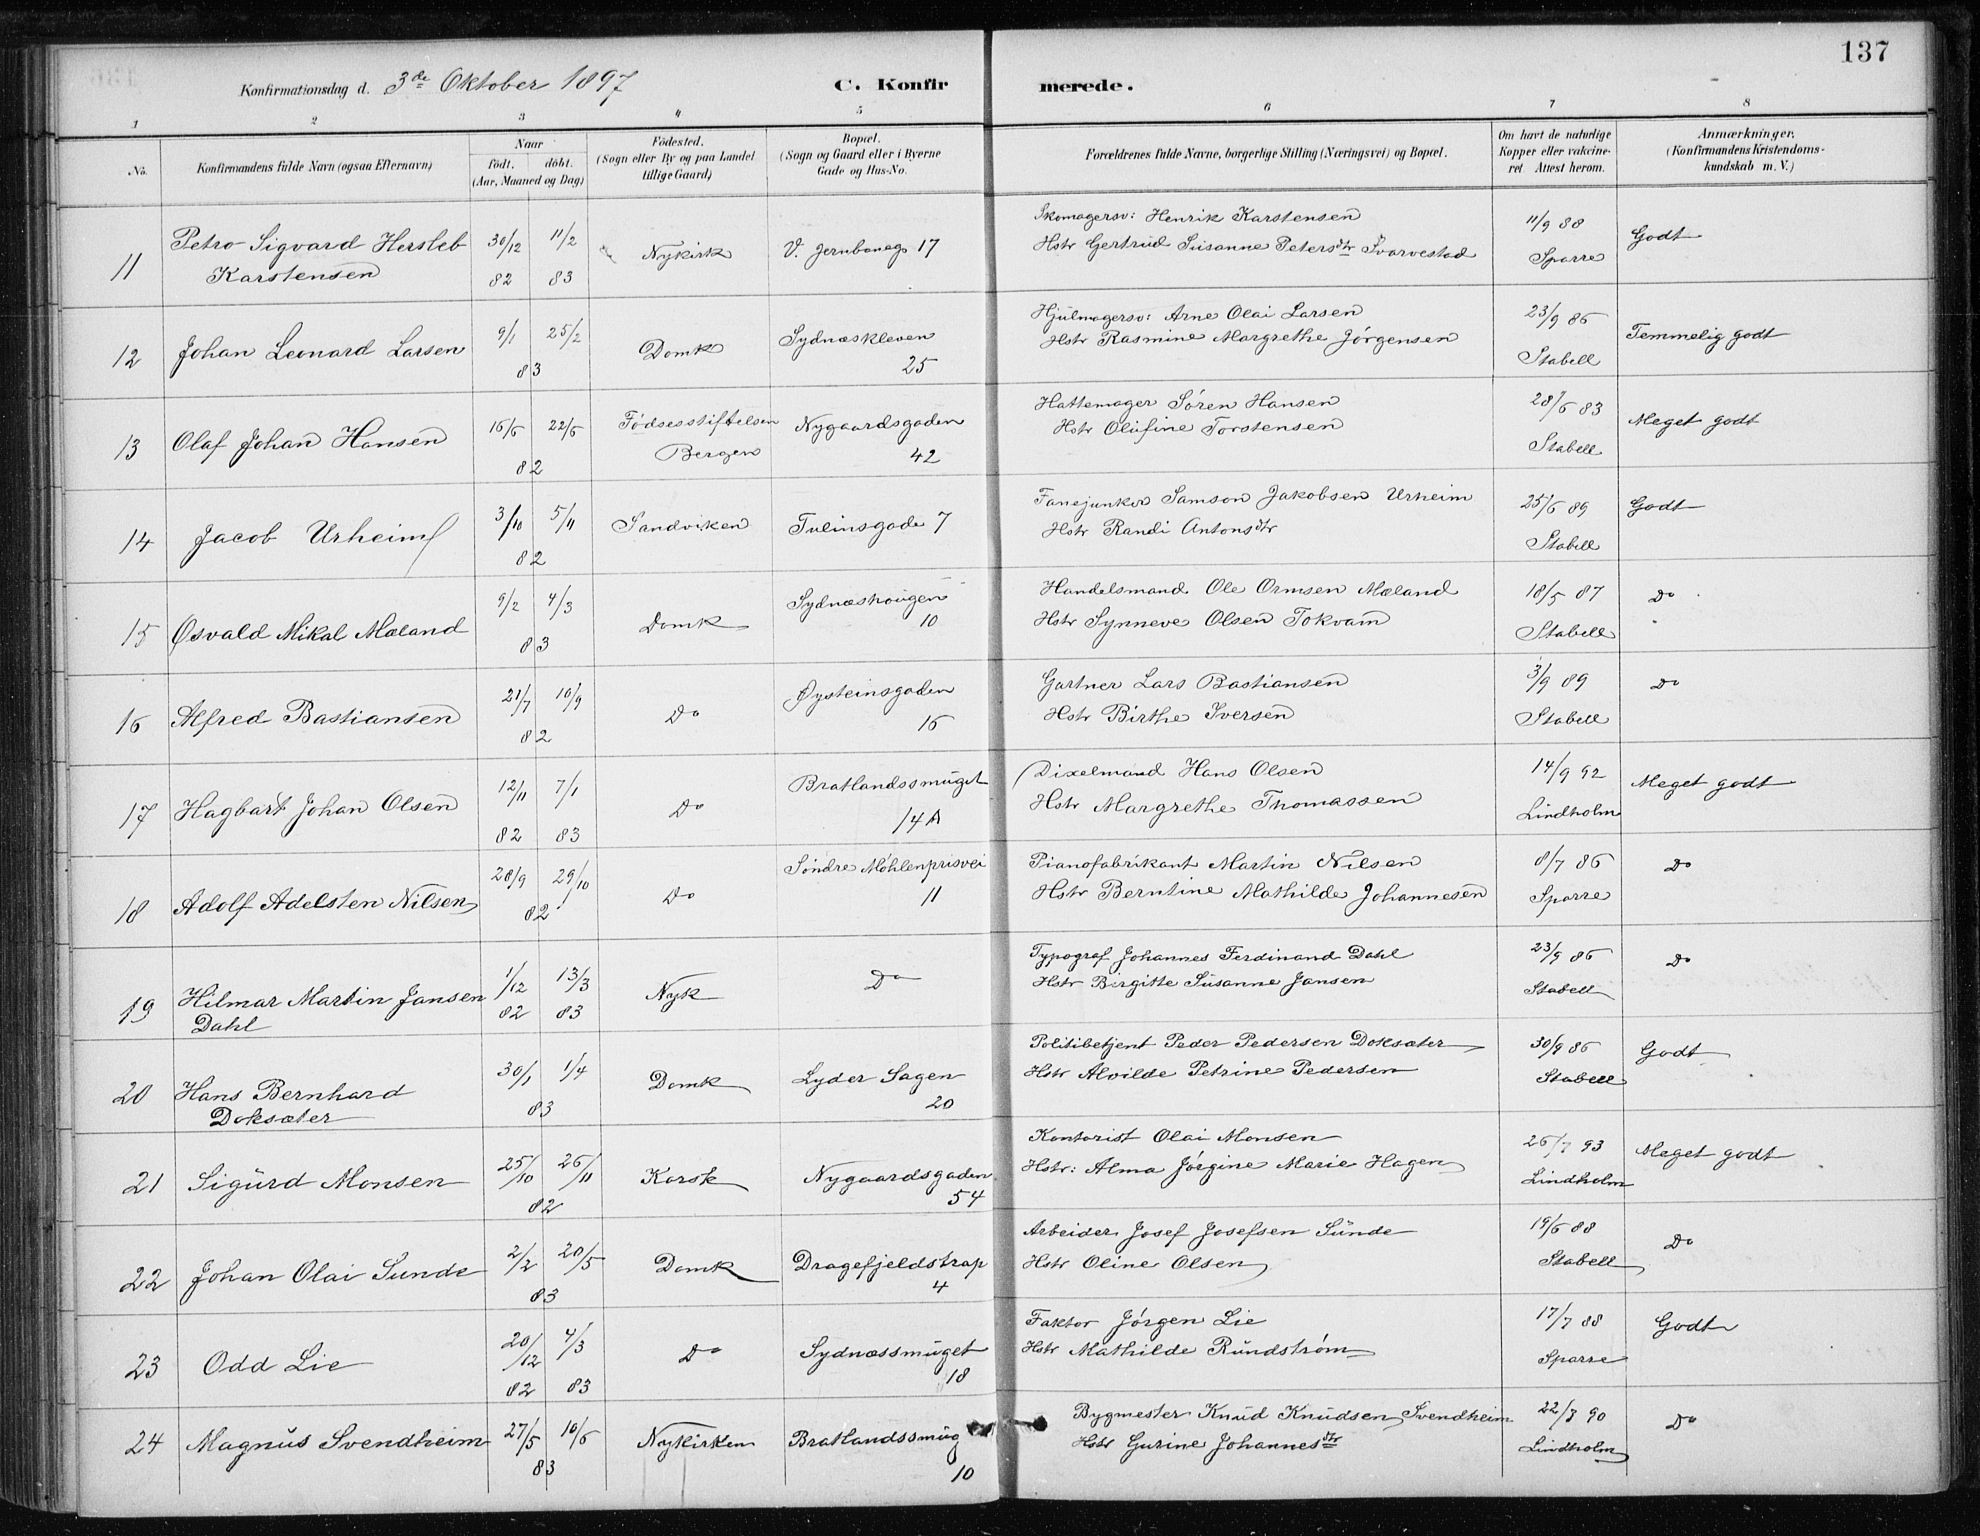 137
Konfirmationsdag d. 3de Oktober 1897 C. Konfirmerede.
1 2 3 4 5 6 7 8
No. Konfirmandens fulde Navn (ogsaa Efternavn) Naar födt. döbt. (Aar, Maaned og Dag) Födested. (Sogn eller By og paa Landet tillige Gaard) Bopæl. (Sogn og Gaard eller i Byerne Gade og Hus-No. Forældrenes fulde Navne, borgerlige Stilling (Næringsvei) og Bopæl. Om havt de naturlige Kopper eller vakcineret Attest herom. Anmærkninger. (Konfirmandens Kristendomskundskab m. V.)
11 Petro Sigvard Hersleb 30/12 11/2 Nykirk V. Jernbaneg 17 Skomagersv: Henrik Karstensen 11/9 88 Godt
Karstensen 82 83 Hstr Gertrud Susanne Petersdtr Svarvestad Sparre
12 Johan Leonard Larsen 9/1 25/2 Domk Sydnæskleven Hjulmagersv: Arne Olai Larsen 23/9 86 Temmelig godt
83 25 Hstr Rasmine Margrethe Jörgensen Stabell
13 Olaf Johan Hansen 16/6 22/6 Födsesstiftelsen Nygaardsgaden Hattemager Sören Hansen 28/6 83 Meget godt
82 Bergen 42 Hstr Olufine Torstensen Stabell
14 Jacob Urheim 3/10 5/11 Sandviken Tulinsgade 7 Fanejunker Samson Jakobsen Urheim 25/6 89 Godt
82 Hstr Randi Antonsdtr Stabell
15 Osvald Mikal Mæland 9/2 4/3 Domk Sydnæshougen Handelsmand Ole Ormsen Mæland 18/5 87 Do
83 10 Hstr Synneve Olsen Tokvam Stabell
16 Alfred Bastiansen 21/7 10/9 Do Øysteinsgaden Gartner Lars Bastiansen 3/9 89 Do
82 16 Hstr Birthe Iversen Stabell
17 Hagbart Johan Olsen 12/11 7/1 Do Bratlandssmuget Dixelmand Hans Olsen 14/9 92 Meget godt
82 83 14 A Hstr Margrethe Thomassen Lindholm
18 Adolf Adelsten Nilsen 28/9 29/10 Do Söndre Möhlenprisvei Pianofabrikant Martin Nilsen 8/7 86 Do
82 11 Hstr Berntine Mathilde Johannesen Sparre
19 Hilmar Martin Jansen 1/12 13/3 Nyk Do Typograf Johannes Ferdinand Dahl 23/9 86 Do
Dahl 82 83 Hstr Birgitte Susanne Jansen Stabell
20 Hans Bernhard 30/1 1/4 Domk Lyder Sagen Politibetjent Peder Pedersen Doksæter 30/9 86 Godt
Doksæter 83 20 Hstr Alvilde Petrine Pedersen Stabell
21 Sigurd Monsen 25/10 26/11 Korsk Nygaardsgaden Kontorist Olai Monsen 26/7 93 Meget godt
82 54 Hstr: Alma Jörgine Marie Hagen Lindholm
22 Johan Olai Sunde 2/2 20/5 Domk Dragefjeldstrap Arbeider Josef Josefsen Sunde 19/6 88 Do
83 4 Hstr Oline Olsen Stabell
23 Odd Lie 20/12 4/3 Do Sydnæssmuget Faktor Jörgen Lie 17/7 88 Godt
82 83 18 Hstr Mathilde Rundström Sparre
24 Magnus Svendheim 27/5 10/6 Nykirken Bratlandssmug Bygmester Knud Knudsen Svendheim 22/3 90 Do
83 10 Hstr Gurine Johannesdtr Lindholm